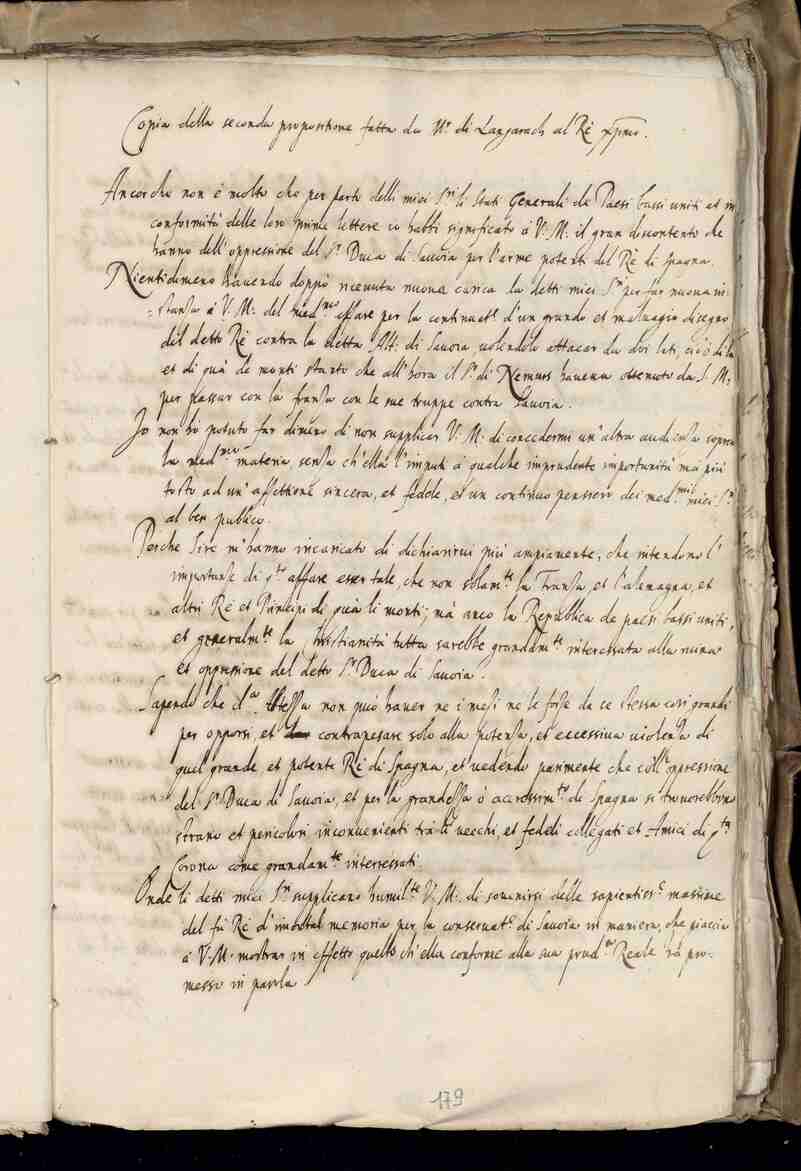 Copia della seconda propositione fatta da Mr di Langarach al Rè xpmo.
Ancorche non è molto che per parte delli miei Sri li Stati Generali de Paesi bassi uniti et in
conformità delle loro prime lettere io habbi significato à V. M. il gran discontento che
hanno dell'oppressione del Sr Duca di Sauoia per l'arme potenti del Rè di Spagna.
Nientedimeno hauendo doppò riceuuta nuoua carica da detti miei Sri per far nuoua in-
=stanza à V. M. del medmo affare per la continuate d'un grande et maluagio disegno
del detto Rè contra la detta Alta di Sauoia uolendolo attacar da doi lati, cioè di là
et di quà de monti stante che all'hora il Sr di Nemurs haueua ottenuto da S. M:
per passar con la franza con le sue truppe contra Sauoia.
Io non hò potuto far dimeno di non supplicar V. M. di concedermi un'altra audienza sopra
la medma materia, senza ch'ella l'imputi à qualche imprudente importunità mà più
tosto ad un'affettione sincera, et fedele, et un continuo pensiero dei medmi miei Sri
al ben publico.
Perche Sire m'hanno incaricato di dichiarirui più ampiamente, che intendono l'
importanza di qto affare esser tale, che non solamte la Franza, et l'alemagna, et
altri Rè et Principi di quà li monti; mà anco la Republica de paesi bassi uniti,
et generalmte la christianità tutta sarebbe grandamte interessata alla ruina
et oppressione del detto Sr Duca di Sauoia.
Sapendo che da Altezza non può hauer ne i mezi ne le forze da se stessa cosi grandi
per opporsi, et contrapesare solo alla potenza, et eccessiua uiolenza di
quel grande, et potente Rè di Spagna, et uedendo parimente che coll'oppressione
del Sr Duca di Sauoia, et per la grandezza ò accressimto di Spagna si trouorebbero
strano et pericolosi inconuenienti trà li uecchi, et fedeli collegati et Amici di qta
Corona come grandamte interressati.
Onde li detti miei Sri supplicano humilte V. M. di souenirsi delle sapientisse massime
del fù Rè d'immortal memoria per la conseruate di Sauoia in maniera, che piaccia
à V. M. mostrar in effetto quello ch'ella conforme alla sua pruda Reale hà pro-
messo in parola
179